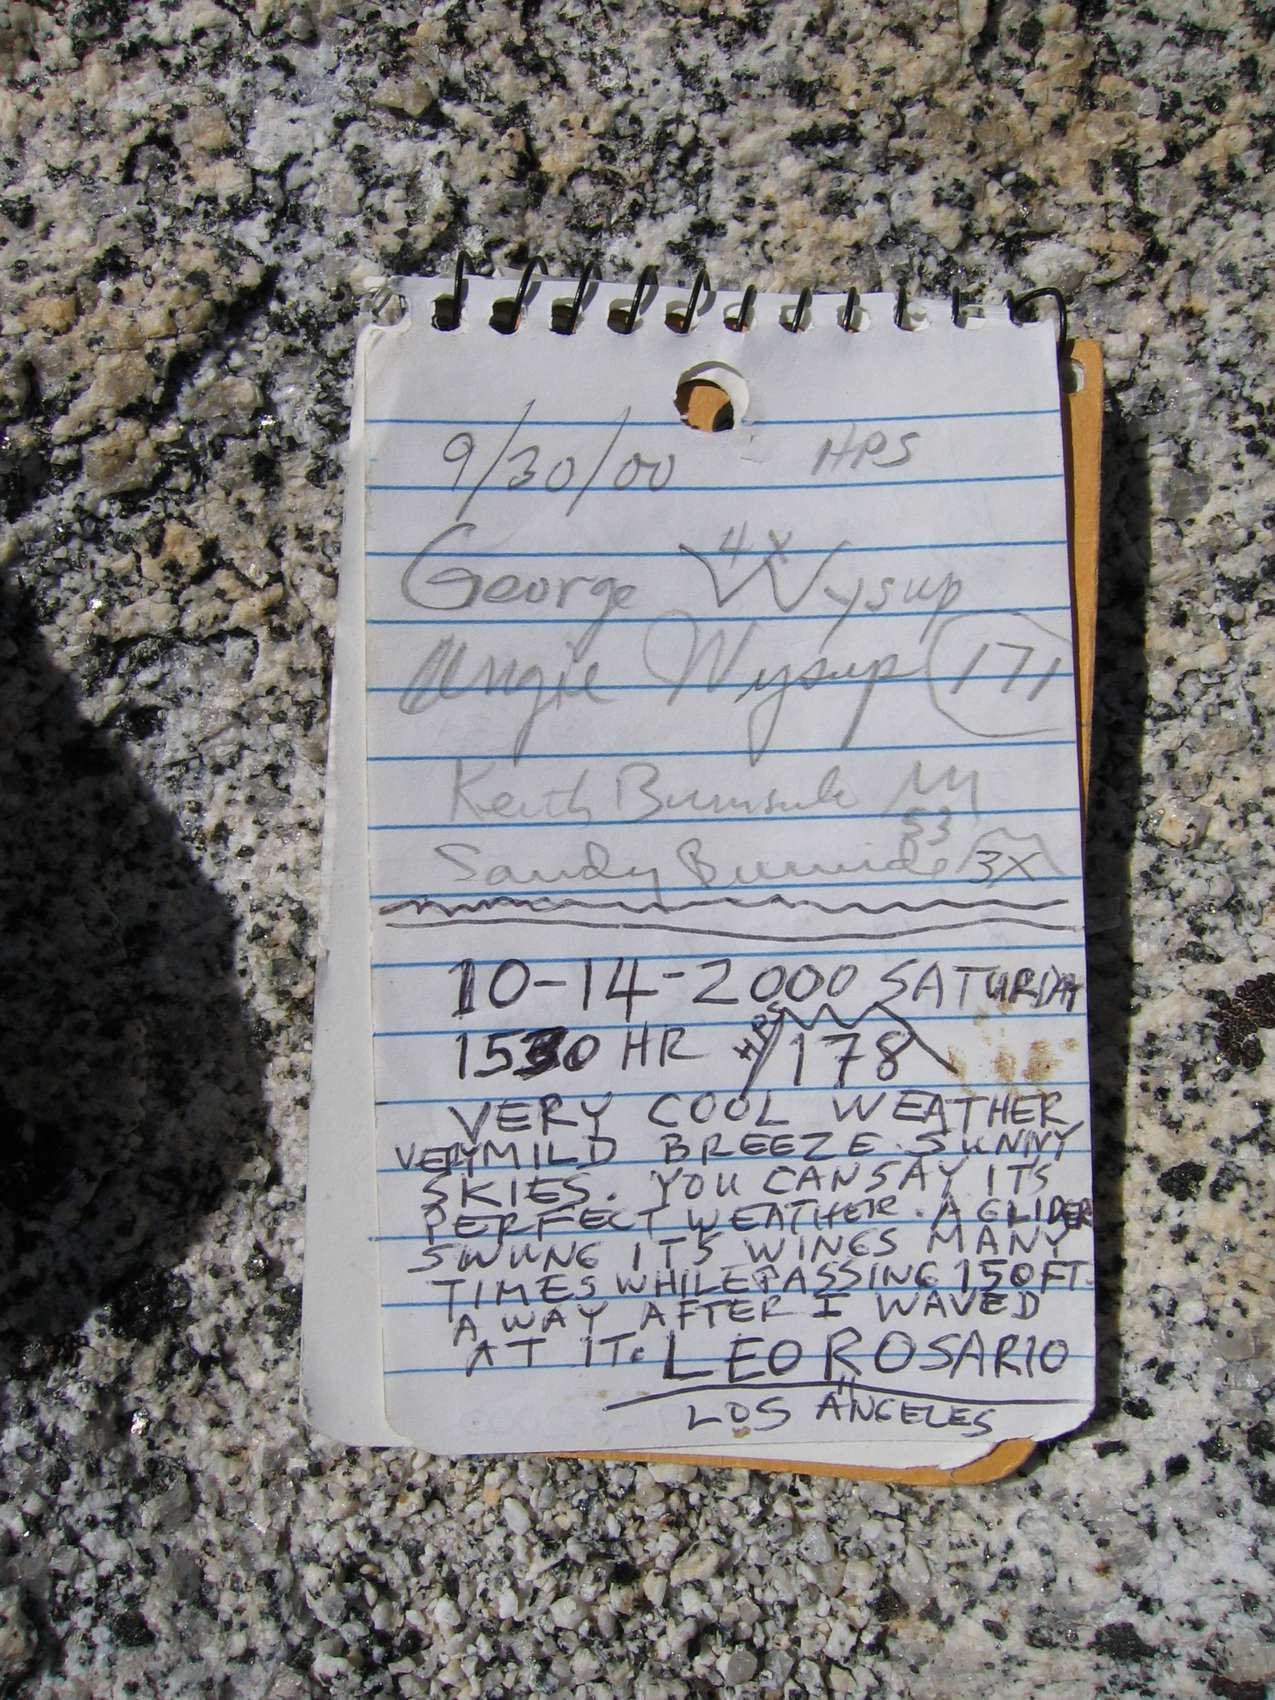 9/30/00 HPS
4X
George Wysup
Angie Wysup 171
Keith Burnside
53
Sandy Burnside 3X
10-14-2000 SATURDAY
1530 HR HPS 178
VERY COOL WEATHER
VERY MILD BREEZE. SUNNY
SKIES. YOU CAN SAY ITS
PERFECT WEATHER. A GLIDER
SWUNG ITS WINGS MANY
TIMES WHILE PASSING 150FT.
AWAY AFTER I WAVED
AT IT. LEO ROSARIO
LOS ANGELES